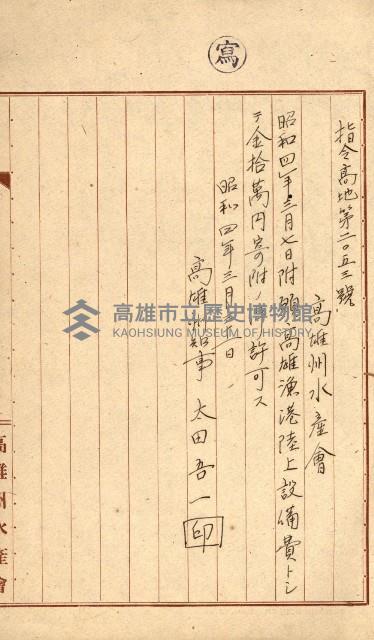 寫
指令高地第二〇五三號
高雄州水產會
昭和四年三月七日附願高雄漁港陸上設備費トシ
テ金拾萬円寄附ノ件許可ス
昭和四年三月 日
高雄州知事 太田吾一 印
高雄州水產會
高雄市立歷史博物館
KAOHSIUNG MUSEUM OF HISTORY